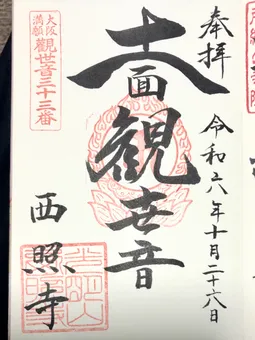 奉拝
令和六年十月二十六日
十一面観世音
大阪
満願
觀世音三十三番
西照寺